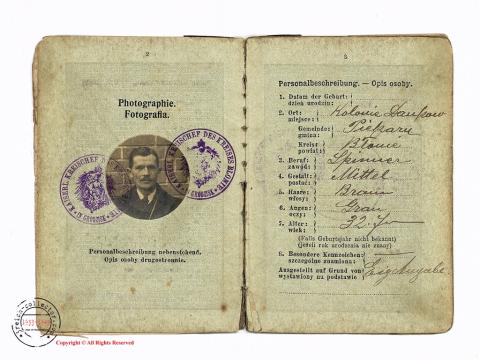 2
Photographie.
Fotografia.
KAISERL. KREISCHEF DES KREISES BLONIE
IN GRODZISK
KREISCHEF DES KREISES BLONIE
GRODZISK
Personalbeschreibung nebenstehend.
Opis osoby drugostronnie.
3
Personalbeschreibung. — Opis osoby.
1. Datum der Geburt:
dzień urodzin:
2. Ort: Kolonie
miejsce:
Gemeinde: Piekary
gmina:
Kreis Błonie
powiat:
3. Beruf: Spinner
zawód:
4. Gestalt: Mittel
postać:
5. Haare: Braun
włosy:
6. Augen: Grau
oczy:
7. Alter: 32. J
wiek:
(Falls Geburtsjahr nicht bekannt)
(Jeżeli rok urodzenia nie znany)
8. Besondere Kennzeichen:
szczególne znamiona:
Ausgestellt auf Grund von Eig. Angabe
wystawiony na podstawie
reich-collector.com
1933-1945
Copyright © All Rights Reserved